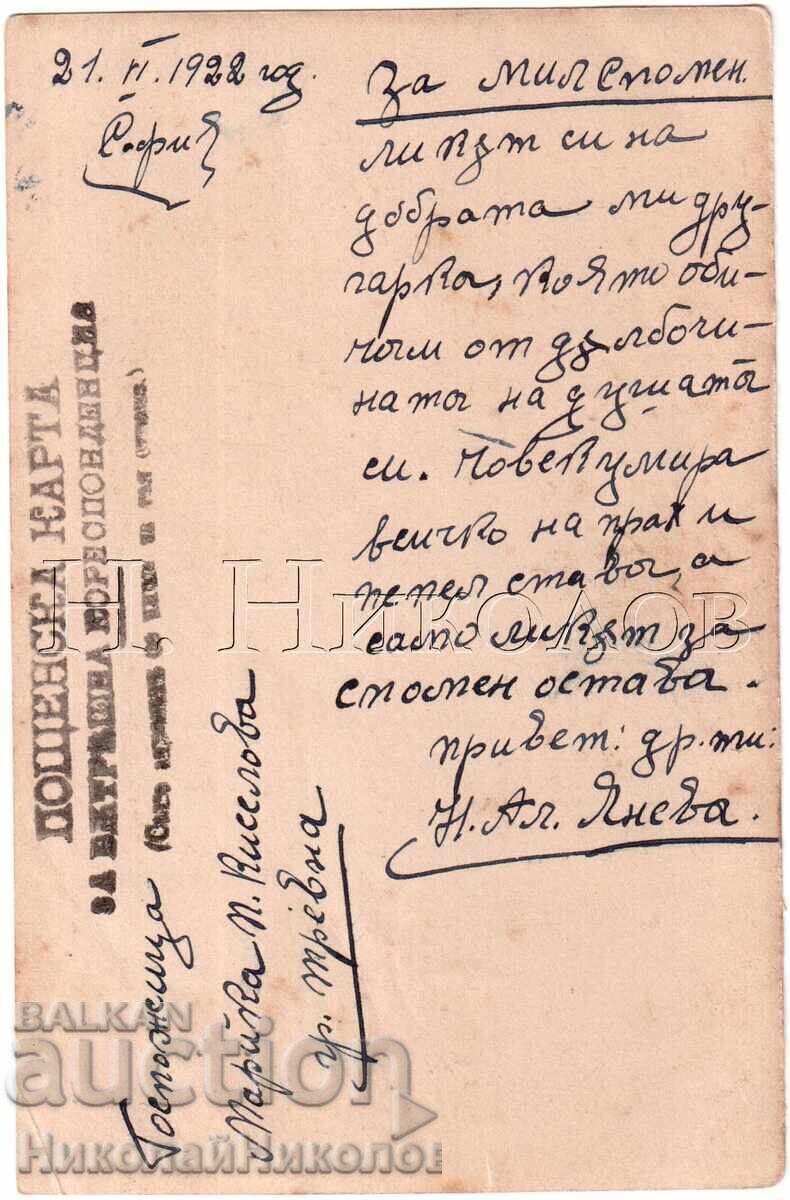 21. VI. 1922 год.
София
За мил спомен.
ликът си на
добрата ми дру-
гарка, която оби-
чам от дълбочи-
ната на душата
си. Човек умира
всичко на прах и
пепел става, а
само ликът за
спомен остава.
привет: др. ти:
Н. Ал. Янева.
ПОЩЕНСКА КАРТА
ЗА ВѪТРѢШНА КОРЕСПОНДЕНЦИЯ
Госпожица
Марийка П. Киселова
гр. Трѣвна
Н. Николов
BALKAN
auction
НиколайНиколов